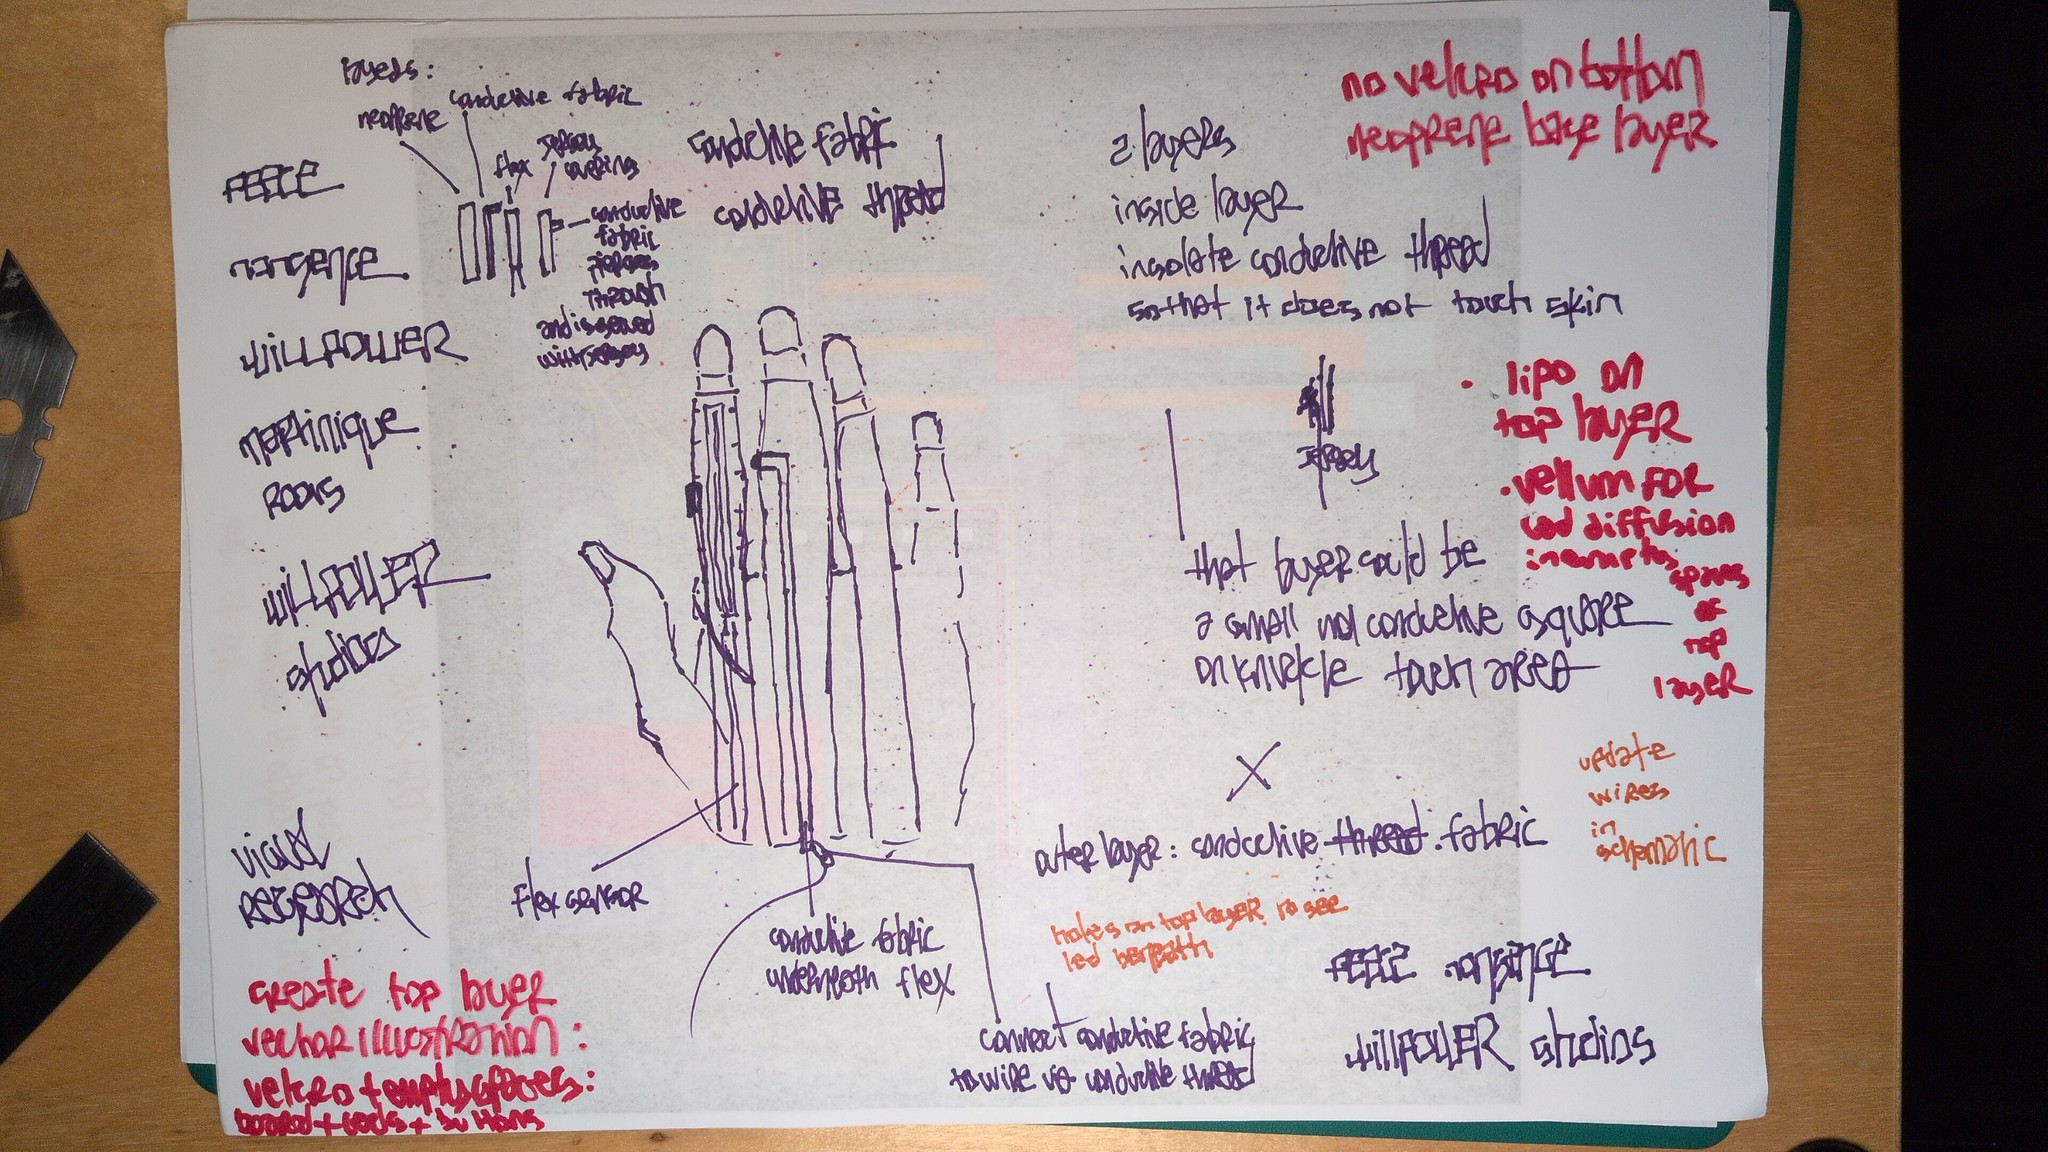 layers:
neoprene
conductive fabric
flex
jersey
covering
conductive
fabric
pierces
through
and is sewed
with jersey
conductive fabric
conductive thread
2 layers
inside layer
insolate conductive thread
so that it does not touch skin
jersey
that layer could be
a small not conductive square
on knuckle touch area
X
outer layer: conductive thread. fabric
holes on top layer to see
led beneath
no velcro on bottom
neoprene base layer
• lipo on
top layer
• vellum for
led diffusion
in empty
spaces
of
top
layer
update
wires
in
schematic
willpower
martinique
willpower
studios
visual
research
flex sensor
conductive fabric
underneath flex
connect conductive fabric
to wire via conductive thread
create top layer
vector illustration:
velcro + empty spaces:
board + leds + buttons
willpower studios